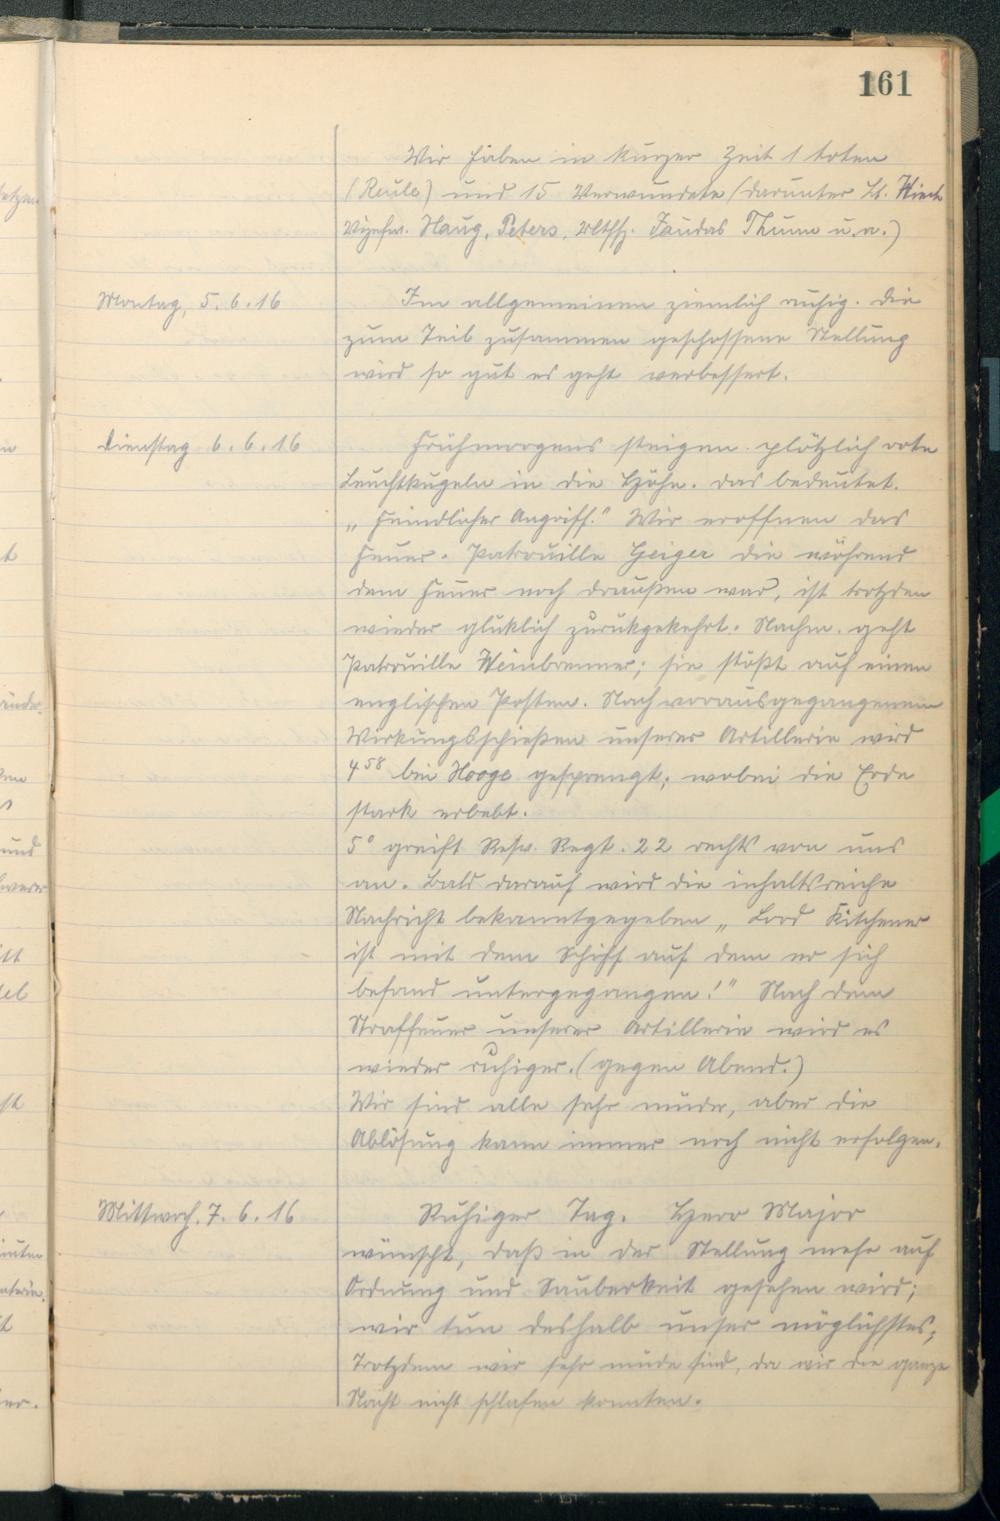 161
Wir haben in kurzer Zeit 1 toten
(Reule) und 15 Verwundete (darunter Lt. Wiech
Vizefw. Haug, Peters, Utffz. Faudas Thumm u.a.)
Montag, 5.6.16
Im allgemeinen ziemlich ruhig. Die
zum Teil zusammen geschossene Stellung
wird so gut es geht verbessert.
Dienstag 6.6.16
Frühmorgens steigen plötzlich rote
Leuchtkugeln in die Höhe. Das bedeutet.
„Feindlicher Angriff." Wir eroffnen das
Feuer. Patrouille Geiger die während
dem Feuer noch draußen war, ist trotzdem
wieder gluklich zurükgekehrt. Nachm. geht
Patrouille Weinbrenner; sie stößt auf einen
englischen Posten. Nach vorausgegangenem
Wirkungsschießen unserer Artillerie wird
4⁵⁸ bei Hooge gesprengt; wobei die Erde
stark erbebt.
5° greift Resv. Regt. 22 rechts von uns
an. Bald darauf wird die inhaltsreiche
Nachricht bekanntgegeben „Lord Kitchener
ist mit dem Schiff auf dem er sich
befand untergegangen!" Nach dem
Straffeuer unserer Artillerie wird es
wieder ruhiger. (gegen Abend.)
Wir sind alle sehr müde, aber die
Ablösung kann immer noch nicht erfolgen.
Mittwoch, 7.6.16
Ruhiger Tag. Herr Major
wünscht, daß in der Stellung mehr auf
Ordnung und Sauberkeit gesehen wird;
wir tun deshalb unser möglichstes;
Trotzdem wir sehr müde sind, da wir die ganze
Nacht nicht schlafen konnten.